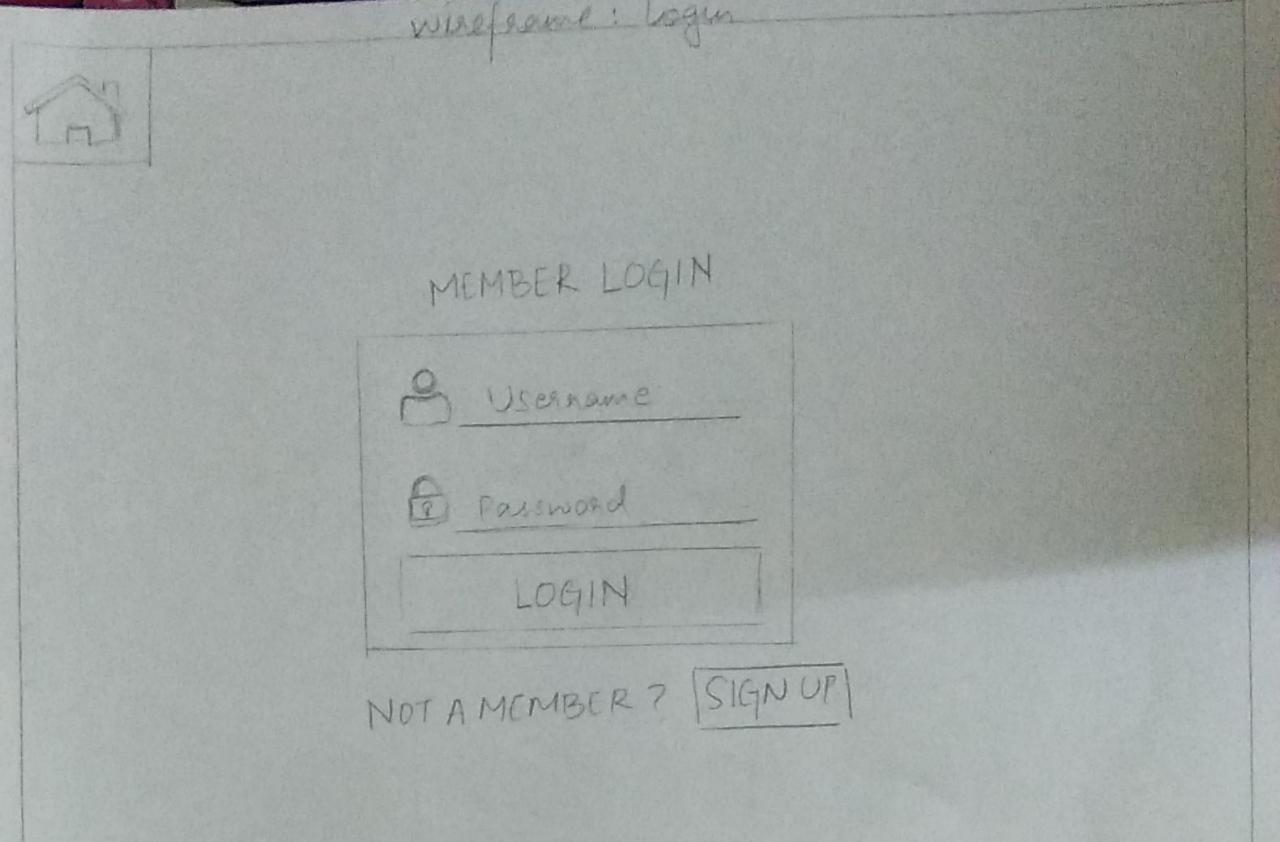 wireframe: Login
MEMBER LOGIN
Username
Password
LOGIN
NOT A MEMBER? SIGN UP